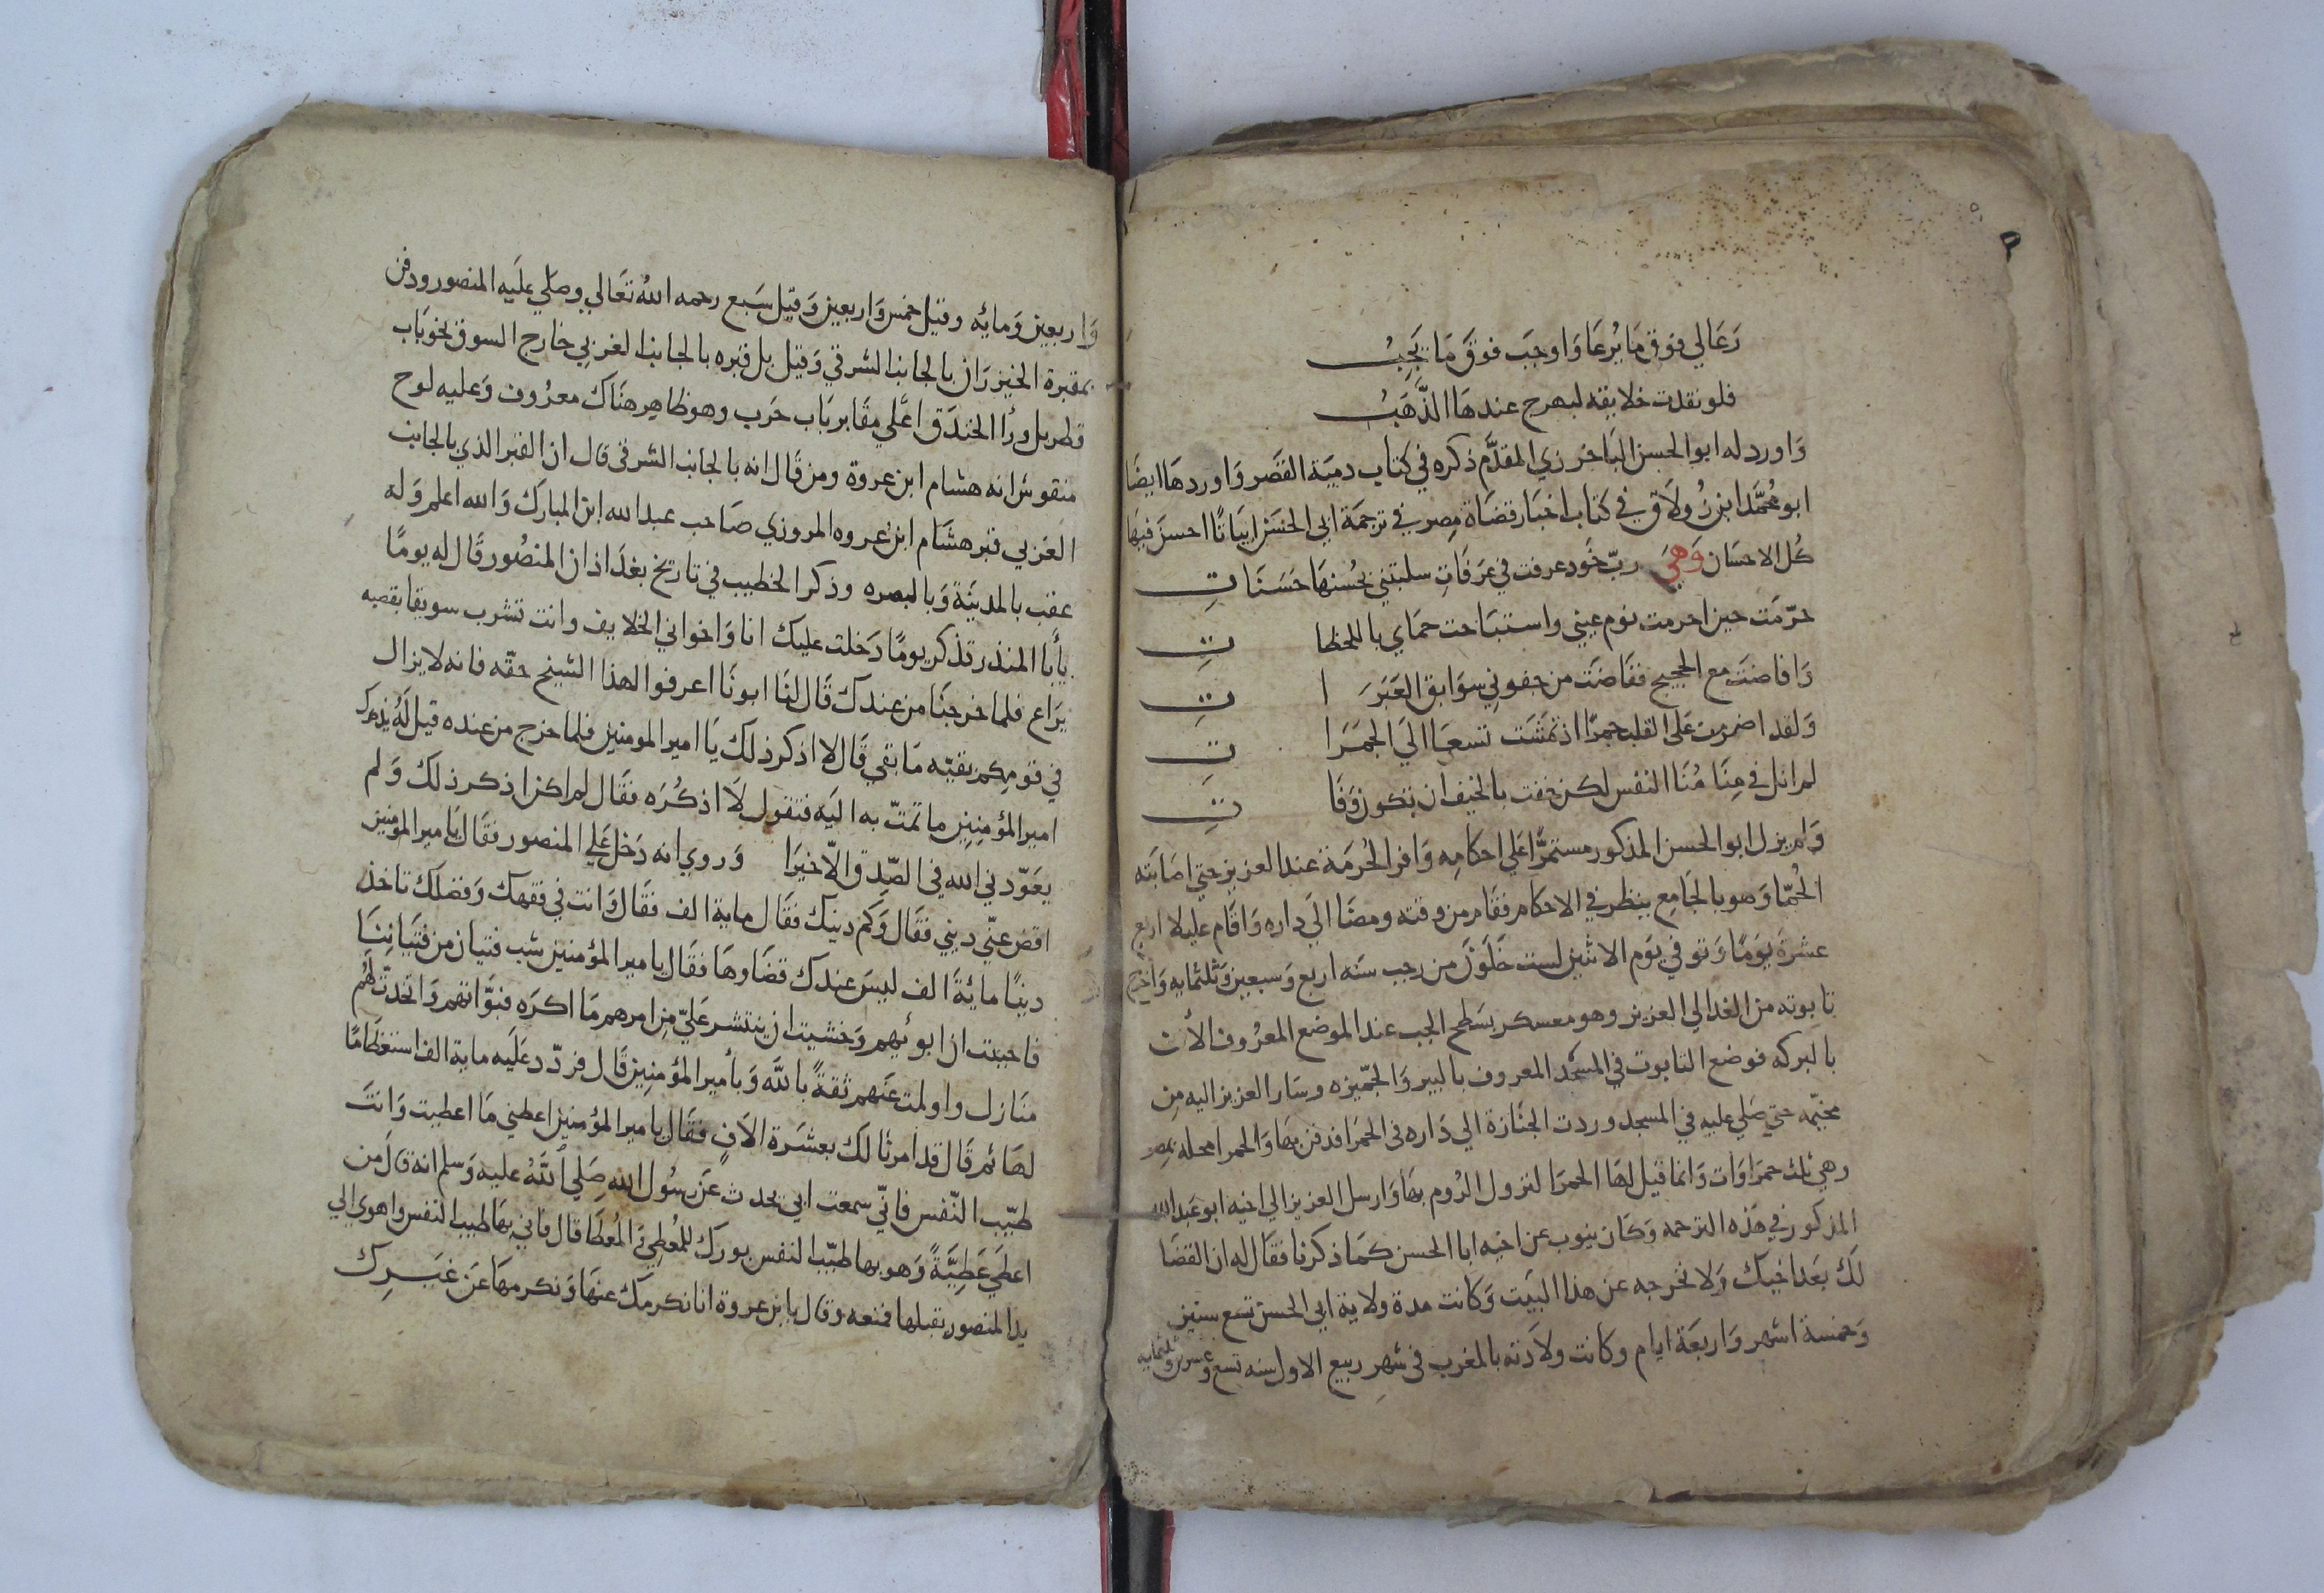 رَعَا لي فوق مَا يُرعَا وَاوجَب فوقَ مَا يَجِبُ
فلو نقدت خلايقه لبهرج عندهَا الذّهَبُ
وَاورد له ابو الحسن الباخرزي المقدّم ذكره في كتاب دمية القصَر وَاوردهَا ايضًا
ابو مُحمَّد ابن زُولَاق في كتاب اخبار قضَاة مِصر في ترجمَة ابي الحسَن ابيَاتًا احسنَ فيهَا
كُل الاحسَان وَهيَ ربّ خَود عرفت في عَرَفَاتِ سلبتني بحُسنهَا حَسَنَاتِ
حرّمَت حين احرمت نوم عيني واستبَاحت حمَاي باللحظاتِ
وَافاضَت مع الحجيج ففَاضَت من جفوني سوَابق العَبَرَاتِ
وَلقد اضرمت عَلى القلب جمرًا اذ تمشَت تسعَا الَي الجمَرَاتِ
لم انل في مِنَا مُنَا النفس لكن خفت بالخيف ان تكون وَفَاتِ
وَلم يزل ابو الحسن المذكور مستمرًّا عَلي احكامه وَافر الحُرمَة عند العزيز حتي اصَابَته
الحُمّا وَهو بالجَامِع ينظر في الاحكام فقَام من وقته ومضَا الَي داره وَاقَام عليلا اربع
عشرَة يَومًا وَتوفي يَوم الاثنين لست خَلَوْنَ من رجب سنَه اربع وَسبعين وَثلثمايه وَاخرج
تابوته من الغد الي العزيز وهو معسكر بسَطح الجب عند الموضع المعرُوف الأن
بالبركه فوضع التابوت في المسجد المعروف بالبير وَالجمّيزه وسَار العزيز اليه مِن
مخيّمه حتي صَلي عليه في المسجد وردت الجنَازة الي دَاره في الحمَرا فدفن بهَا وَالحمرا محله بمصر
وهي ثلث حمرَاوَات وَانما قيل لهَا الحمرَا لنزول الرُوم بهَا وَارسل العزيز الي اخيه ابو عبدالله
المذكور في هَذه الترجمه وَكَان ينوب عن اخيه ابا الحسن كمَا ذكرنا فقَال له ان القضَا
لَك بعَد اخيك وَلا نخرجه عن هذا البَيت وَكانت مدة ولاية ابي الحسن تسع سنين
وَخمسة اشهر وَاربعَة ايام وكانت ولَادته بالمغرب في شهر ربيع الاول سنه تسع وعشرين وثلثمايه
وَاربعين وَمائه وقيل خمس وَاربعين وَقيل سَبع رحمه اللهُ تعَالي وصَلي علَيه المنصور ودفن
بمقبرة الخيزرَان بالجانب الشرقي وَقيل بل قبره بالجانب الغربي خارج السوق نحو بَاب
قطربل ورأ الخندَق اعَلي مقَابر بَاب حَرب وهو ظاهر هنَاك معرُوف وَعليه لوح
منقوش انه هشام ابن عروة ومن قَال انه بالجانب الشرقي قال ان القبر الذي بالجانب
الغَربي قبر هشَام ابن عروه المروزي صَاحب عبدالله ابن المبارَك وَالله اعلم وَله
عقب بالمدينَة وَبالبصره وذكر الخطيب في تاريخ بغدَاذ ان المنصُور قَال له يومًا
يأبَا المنذر تذكر يومًا دَخلت عليك انا وَاخواني الخلايف وانت تشرب سويقا بقصبه
يَرَاع فلما خرجنَا من عندك قَال لنَا ابونَا اعرفوا لهذا الشيخ حقه فانه لا يزال
في قومكم بقيّه مَا بقي قَال لا اذكر ذلك يَا امير المومنين فلما خرج من عنده قيل لَهُ يذكرك
امير المؤمنِين ما تمتّ به اليَه فتقول لَا اذكُرَه فقَال لم اكن اذكر ذلك وَلم
يعَوّدني الله في الصّدِق الّا خيرَا وَروي انه دَخل عَلي المنصور فقَال يَامير المؤمنين
اقضِ عنّي ديني فقَال وَكم دينك فقَال ماية الف فقَال وَانت في فقهك وَفضلكَ تاخذ
دينًا مائةَ الف ليسَ عندك قضَاوهَا فقَال يامير المؤمنين شب فتيان من فتيَانِنَا
فاحببت ان ابوئهم وَخشيت ان ينتشر عَليّ مِن امرهم مَا اكرَه فبوَّاتهم وَاتخذتُ لَهُم
منَازل واولمت عَنهم ثقةً باللَّه وَبأمير المؤمنِين قَال فردّد علَيه ماية الف استعظَامًا
لهَا ثم قَال قد امرنَا لك بعشَرة الافٍ فقَال يامير المؤمنين اعطني مَا اعطيت وَانتَ
طيّب النّفس فانّي سمعت ابي يحدث عَن رسُول اللهِ صَلي اللهُ عليه وَسلم انه قالَ مَن
اعطَي عَطِيَّةً وَهو بها طيّب النفس بورك للمُعطي وَ المُعطَا قال فاني بهَا طيب النفس واهوي الي
يد المنصور يقبلها فمنعه وقال يا بن عروة انا نكرمَك عنهَا وَنكرمهَا عَن غَيرِك